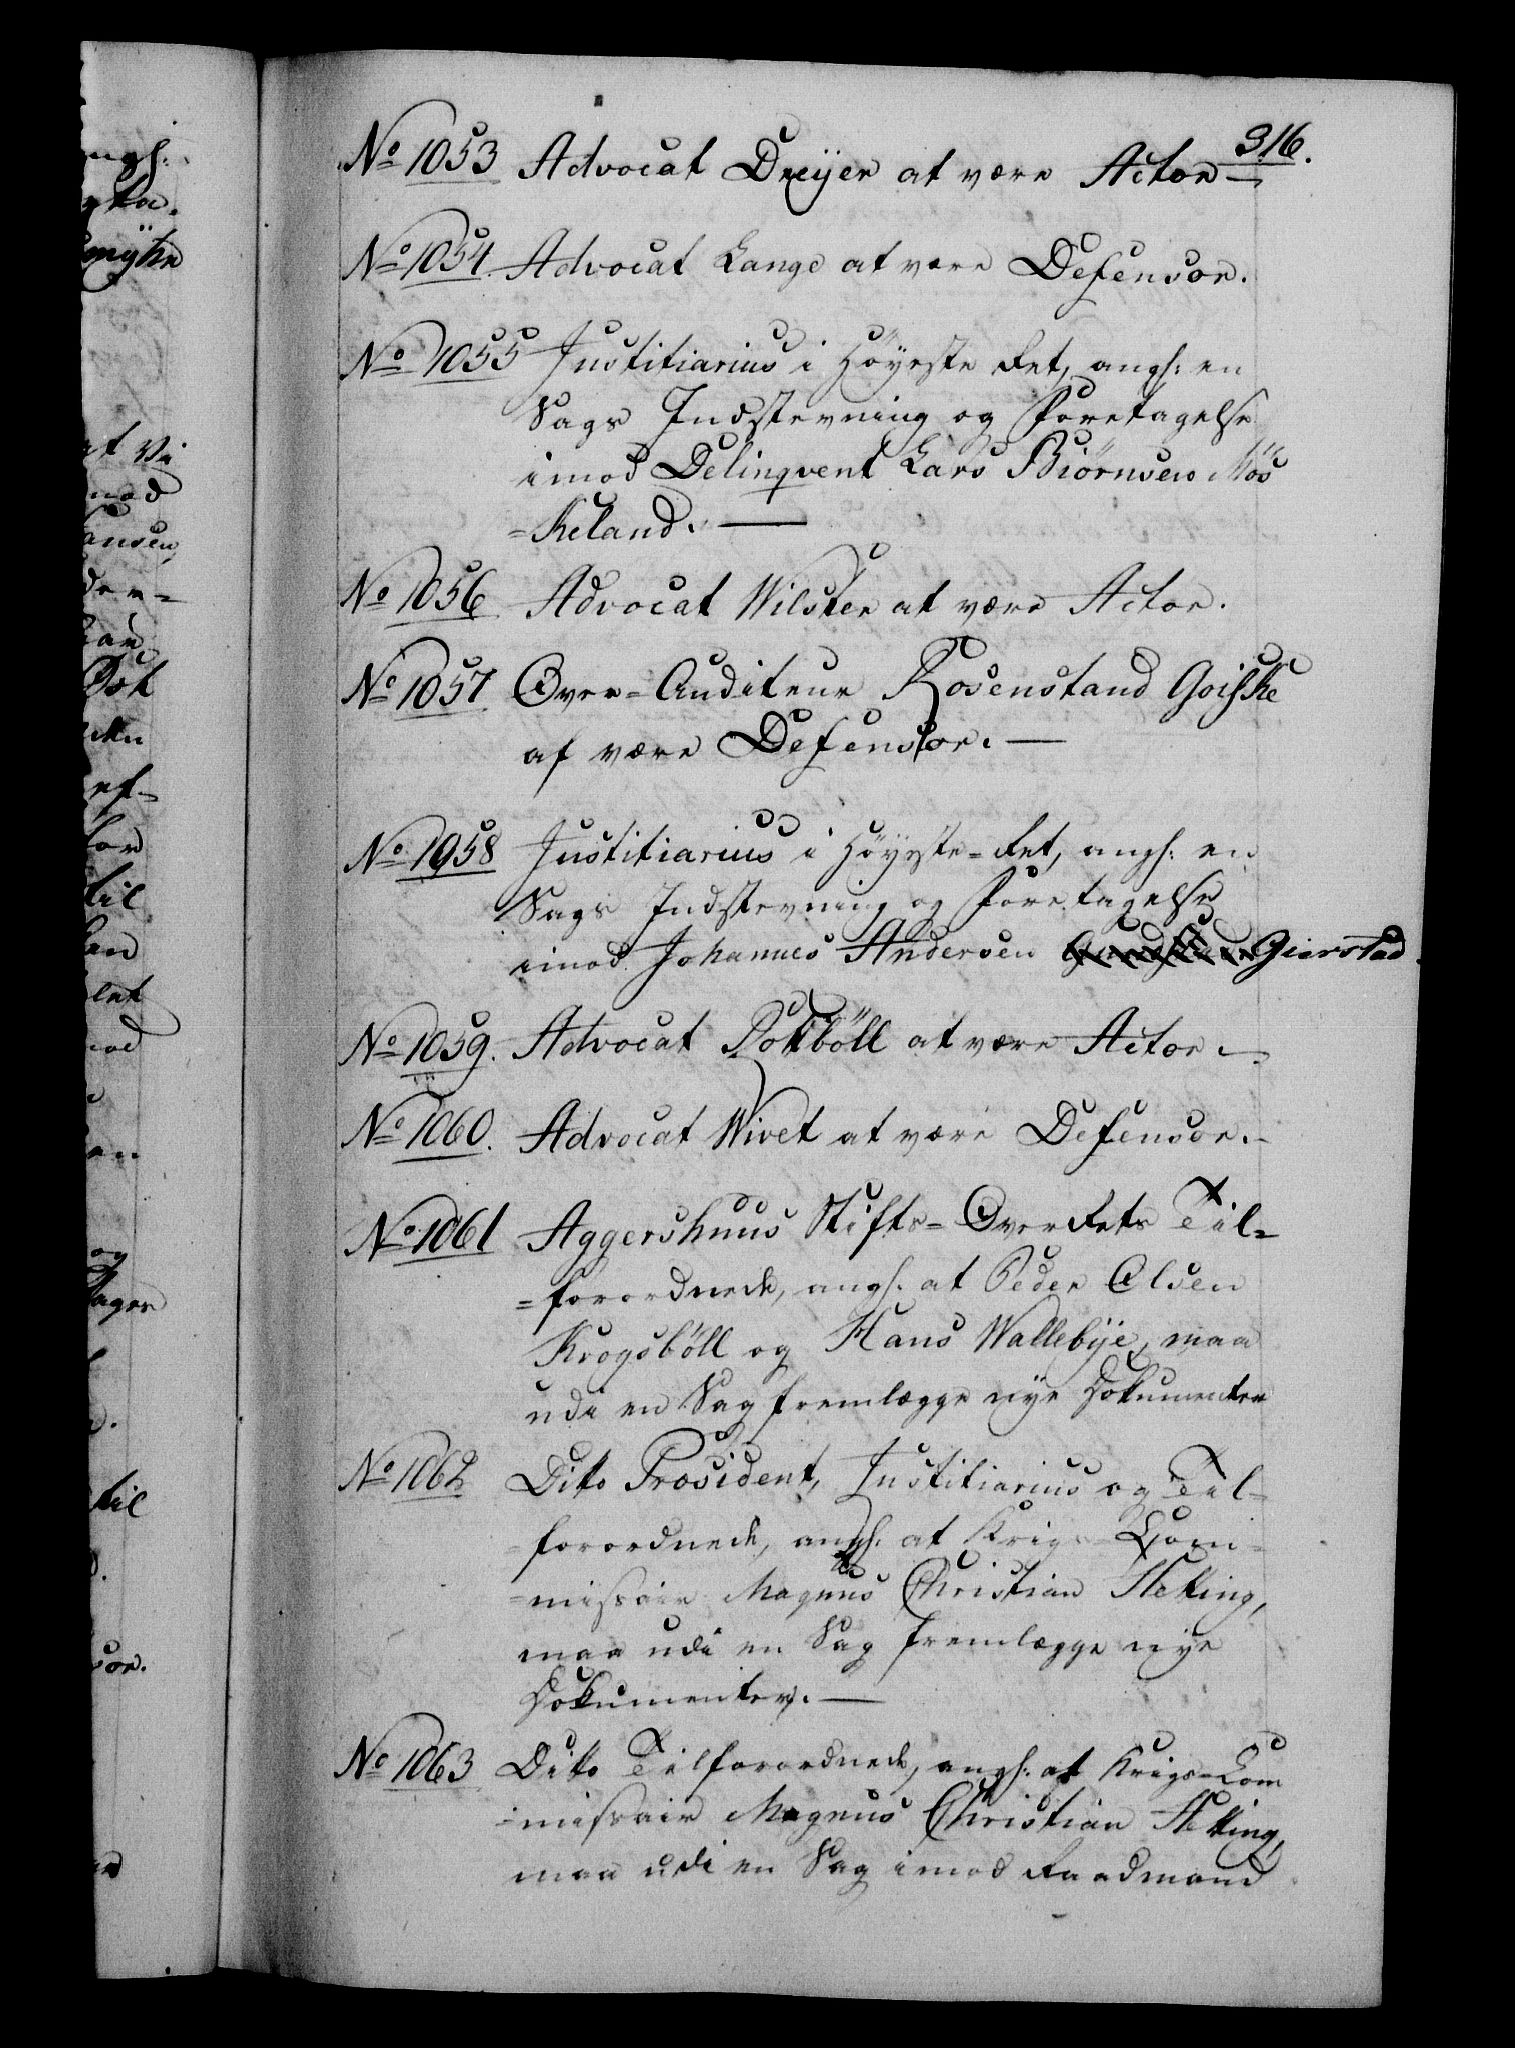 316.
No 1053 Advocat Dreÿer at være Actor —
No 1054 Advocat Lange at være Defensor.
No 1055 Justitiarius i Höyeste Ret, angl: en
Sags Indstevning og Foretagelse
imod Delinqvent Lars Biörnsen Mös
=keland. —
No 1056 Advocat Wilster at være Actor.
No 1057 Over=Auditeur Rosenstand Goiske
at være Defensor. —
No 1058 Justitiarius i Höyeste=Ret, angl: en
Sags Indstevning og Foretagelse
imod Johannes Andersen Gierstad.
No 1059. Advocat Rotböll at være Actor. —
No 1060. Advocat Wivet at være Defensor. —
No 1061 Aggershuus Stifts=Overrets Til=
=forordnede, angl. at Peder Olsen
Krogsböll og Hans Wallebÿe, maa
udi en Sag fremlægge nye Dokumenter
No 1062 Dito Præsident, Justitiarius og Til=
=forordnede, angl: at Krigs=Com=
=missair Magnus Christian Hetting,
maa udi en Sag fremlægge nye
Dokumenter. —
No 1063 Dito Tilforordnede, angl: at Krigs=Com
=missair Magnus Christian Hetting,
maa udi en Sag imod Raadmand
angl:
at Vi
imod
Hansen,
til
og
til
sor.